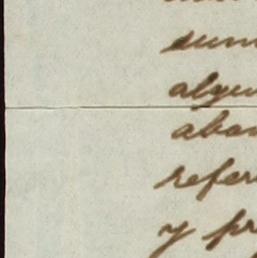 sum
algu
aban
refer
y pr